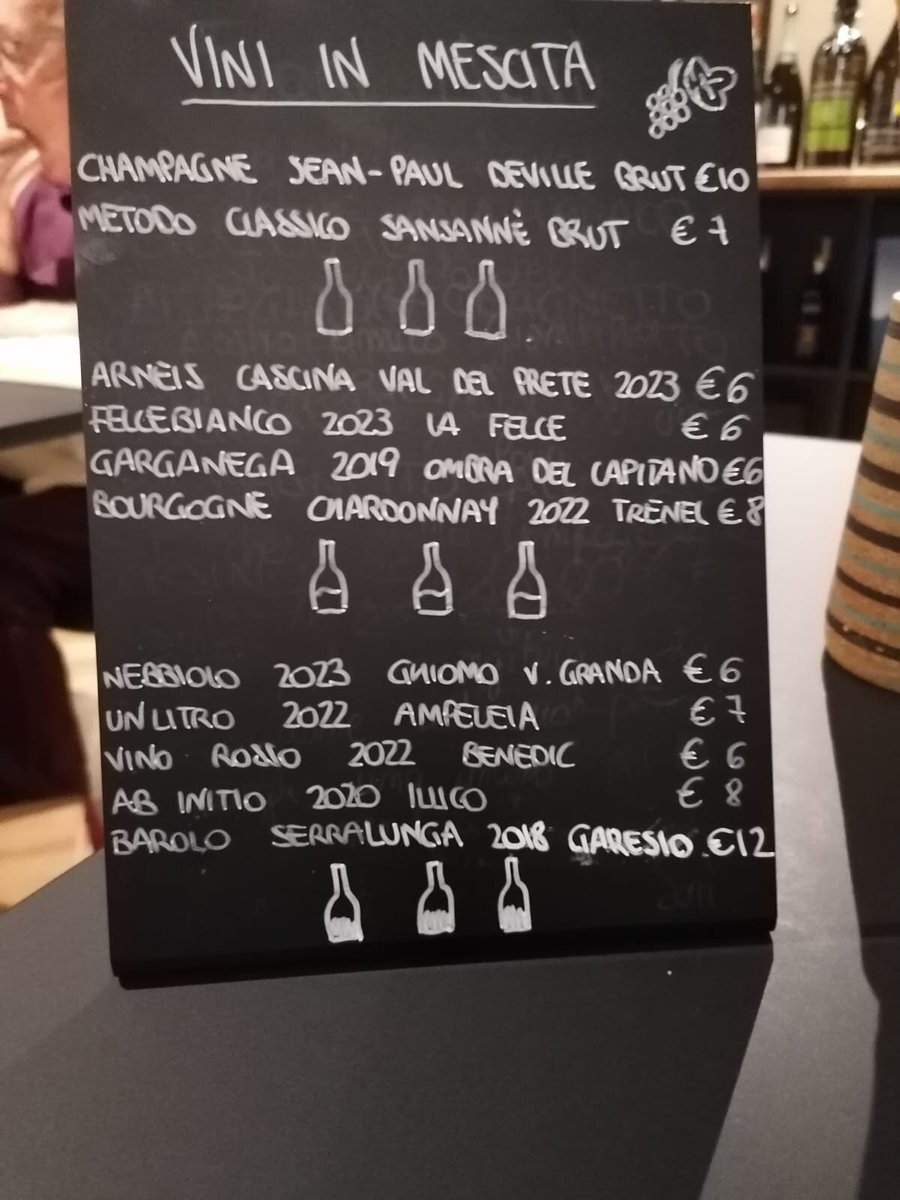 VINI IN MESCITA
CHAMPAGNE JEAN-PAUL DEVILLE BRUT €10
METODO CLASSICO SANSANNÈ BRUT € 7
ARNEIS CASCINA VAL DEL PRETE 2023 € 6
FELCEBIANCO 2023 LA FELCE € 6
GARGANEGA 2019 OMBRA DEL CAPITANO €6
BOURGOGNE CHARDONNAY 2022 TRENEL € 8
NEBBIOLO 2023 GHIOMO V. GRANDA € 6
UNLITRO 2022 AMPELEIA € 7
VINO ROSSO 2022 BENEDIC € 6
AB INITIO 2020 € 8
BAROLO SERRALUNGA 2018 GARESIO . €12